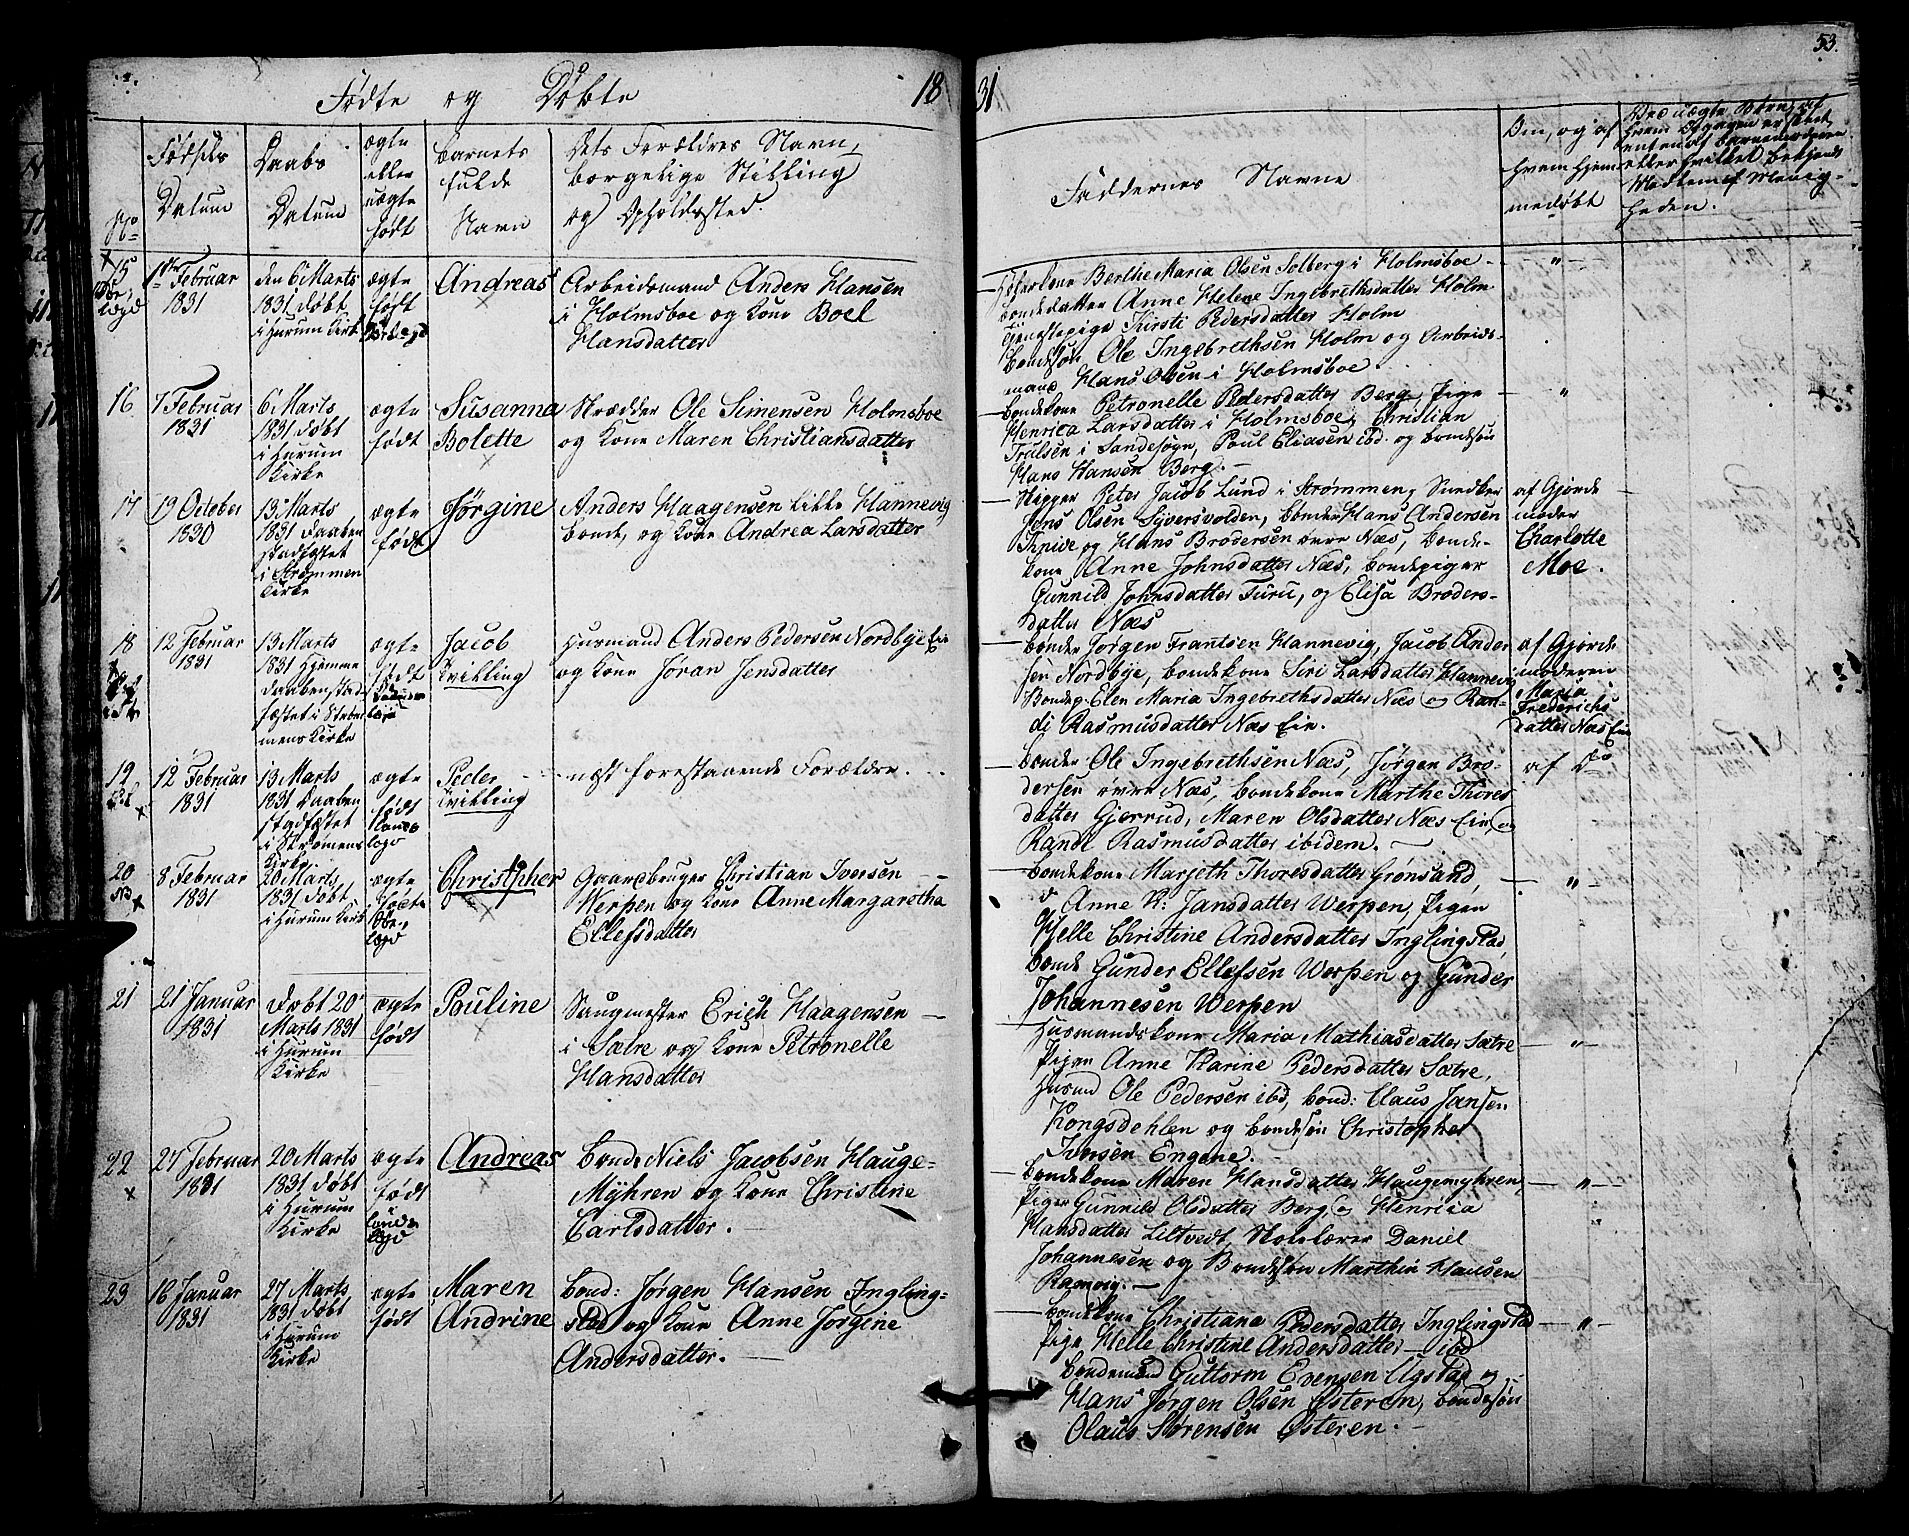 53.
Fødte og Døbte 1831
No
Fødsels
Datum
Daabs
Datum
ægte
eller
uægte
født
Barnets
fulde
Navn
Dets Forældres Navn,
borgerlige Stilling
og Opholdssted.
Faddernes Navne
Om, og af
hvem hjem-
medøbt
Ved uægte Børn, af
hvem Opgaven er skeet
enten af Barnemoderen
eller hvilket bekjendt
Medlem af Menig-
heden.
15
1ste Februar
1831
den 6 Marts
1831 døbt
i Hurum Kirke
ægte
født
Andreas
Arbeidsmand Anders Hansen
i Holmsboe og Kone Boel
Hansdatter
Berthe Maria Olsen Solberg i Holmsboe
Bondedatter Anne Helene Ingebrethsdatter Holm
Tjenestepige Kirsti Pedersdatter Holm
Bondesøn Ole Ingebrethsen Holm og Arbeids-
mand Hans Olsen i Holmsboe.
"
16
7 Februar
1831
6 Marts
1831 døbt
i Hurum
Kirke
ægte
født
Susanna
Bolette
Skrædder Ole Simensen Holmsboe
og Kone Maren Christiansdatter
Bondekone Petronelle Pedersdatter Berg, Pige
Henrica Larsdatter i Holmsboe, Christian
Trulsen i Sandesogn, Poul Eliasen ibd. og Bondesøn
Hans Hansen Berg.
"
17
19 October
1830
13 Marts
1831 Daaben
stadfæstet
i Strømmen
Kirke
ægte
født
Jørgine
Anders Haagensen Lille Hannevig
Bonde, og Kone Andrea Larsdatter
Skipper Peter Jacob Lund i Strømmen,
Jens Olsen Syversvolden, Bonder Hans Andersen
Knive og Hans Brodersen øvre Næs, Bonde-
kone Anne Johnsdatter Næs, Bondepiger
Gunnild Johnsdatter Furu, og Elisa Broders-
datter Næs
af Gjorde
moder
Charlotte
Moe.
18
12 Februar
1831
13 Marts
1831 Hjemme
daaben stad-
fæstet i Strøm
mens Kirke
ægte
født
Jacob
Tvilling
Husmand Anders Pedersen Nordbye Eie
og Kone Jøran Jensdatter
Bonde Jørgen Frantsen Hannevig, Jacob Ander
sen Nordbye, Bondekone Siri Larsdatter Hannevig
Bondep. Elen Maria Ingebrethsdatter Næs og Ran-
di Rasmusdatter Næs Eie.
af Gjorde
moderen
Maria
Frederichs
datter Næs Eie
19
12 Februar
1831
13 Marts
1831 Daaben
stadfæstet
i Strømens
Kirke.
ægte
født
Peder
Tvilling
næst forestaaende Forældre.
Bonde Ole Ingebrethsen Næs, Jørgen Bro-
dersen øvre Næs, Bondekone Marthe Thores
datter Gjerrud, Maren Olsdatter Næs Eie, og
Randi Rasmusdatter ibidem.
af Do
20
8 Februar
1831
20 Marts
1831 døbt
i Hurum Kirke
ægte
Christopher
Gaardbruger Christian Iversen
Werpen og Kone Anne Margaretha
Ellefsdatter
Bondekone Marjeth Thoresdatter Grønsand,
Anne K: Jansdatter Werpen, Pigen
Helle Christine Andersdatter Inglingstad
Bonde Gunder Ellefsen Werpen og Gunder
Johannesen Werpen
"
21
21 Januar
1831
døbt 20
Marts 1831
i Hurum
Kirke
ægte
født
Pouline
Saugmester Erich Haagensen
i Sætre og Kone Petronelle
Hansdatter
Husmandskone Maria Mathiasdatter Sætre
Pigen Anne Karine Pedersdatter Sætre,
Husmd Ole Pedersen ibd, Bond: Claus Jansen
Kongsdehlen og Bondesøn Christopher
Iversen Engene.
"
22
27 Februar
1831
20 Marts
1831 døbt
i Hurum
Kirke
ægte
født
Andreas
Bonde Niels Jacobsen Hauge-
Mÿhren og Kone Christine
Carlsdatter.
Bondekone Maren Hansdatter Haugemyhren,
Piger Gunnild Olsdatter Berg, og Henrica
Hansdatter Liltvedt, Skolelærer Daniel
Johannesen og Bondesøn Marthin Hansen
Ramvig.
"
23
16 Januar
1831
27 Marts
1831 døbt
i Hurum
Kirke
ægte
født
Maren
Andrine
Bond: Jørgen Hansen Ingling-
stad og Kone Anne Jørgine
Andersdatter.
Bondekone Christiane Pedersdatter Inglingstad
Pige Helle Christine Andersdatter ibd
Bondemand Guttorm Evensen Ugstad og
Hans Jørgen Olsen Østeren, Bondesøn
Olaus Sørensen Østeren.
"